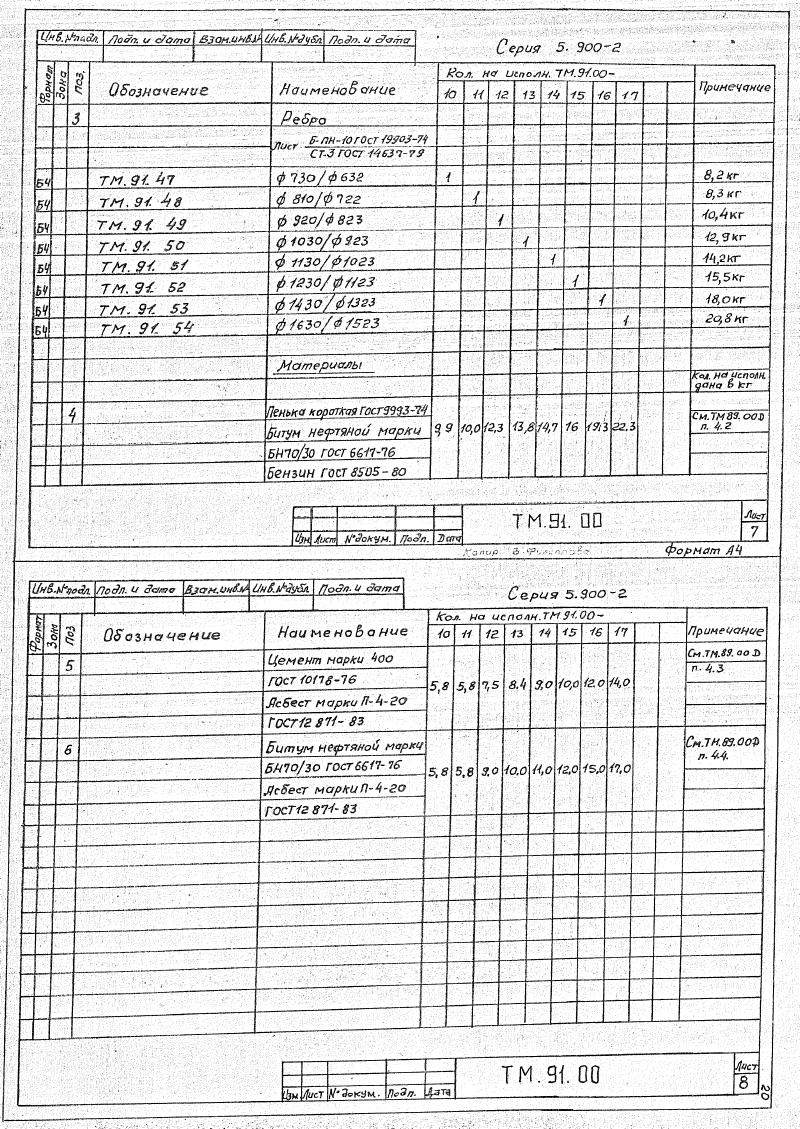 Инв.№подл. Подп. и дата Взам.инв.№ Инв.№дубл. Подп. и дата
Серия 5. 900-2
Формат Зона Поз. Обозначение Наименование Кол. на исполн. ТМ.91.00- Примечание
10 11 12 13 14 15 16 17
3 Ребро
Лист Б-ПН-10 ГОСТ 19903-74
СТ.3 ГОСТ 14637-79
Б4 ТМ. 91. 47 ф 730/ф 632 1 8,2 кг
Б4 ТМ. 91. 48 ф 810/ф 722 1 8,3 кг
Б4 ТМ. 91. 49 ф 920/ф 823 1 10,4 кг
Б4 ТМ. 91. 50 ф 1030/ф 923 1 12,9 кг
Б4 ТМ. 91. 51 ф 1130/ф 1023 1 14,2 кг
Б4 ТМ. 91. 52 ф 1230/ф 1123 1 15,5 кг
Б4 ТМ. 91. 53 ф 1430/ф 1323 1 18,0 кг
Б4 ТМ. 91. 54 ф 1630/ф 1523 1 20,8 кг
Материалы
Кол. на исполн.
дана в кг
4 Пенька короткая ГОСТ 9993-74 См.ТМ 89.00 Д
Битум нефтяной марки 9,9 10,0 12,3 13,8 14,7 16 19,3 22,3 п. 4.2
БН70/30 ГОСТ 6617-76
Бензин ГОСТ 8505-80
ТМ.91. 00
Лист
7
Изм Лист №докум. Подп. Дата
Копир. Формат А4
Инв.№подл. Подп. и дата Взам.инв.№ Инв.№дубл. Подп. и дата
Серия 5.900-2
Формат Зона Поз Обозначение Наименование Кол. на исполн. ТМ 91.00- Примечание
10 11 12 13 14 15 16 17
5 Цемент марки 400 См.ТМ.89.00 Д
ГОСТ 10178-76 5,8 5,8 7,5 8.4 9,0 10,0 12.0 14,0 п. 4.3
Асбест марки П-4-20
ГОСТ 12 871-83
6 Битум нефтяной марки См.ТМ.89.00Д
БН70/30 ГОСТ 6617-76 5,8 5,8 9,0 10,0 11,0 12,0 15,0 17,0 п. 4.4.
Асбест марки П-4-20
ГОСТ 12 871-83
ТМ.91.00
Лист
8
Изм Лист №докум. Подп. Дата
20